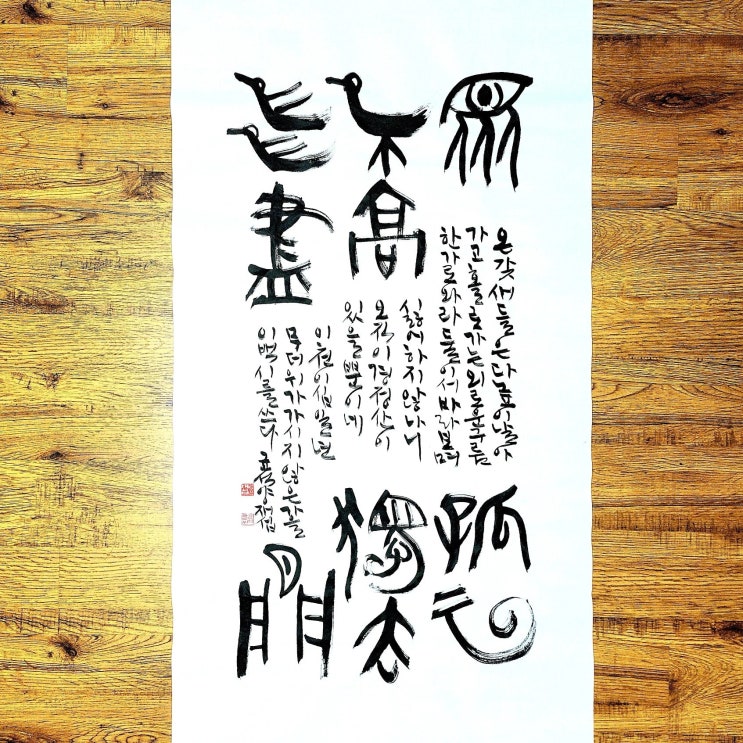 眾
鳥高
飛盡
孤云
獨去
閒
온갖 새들은 다 높이 날아
가고 홀로 떠가는 외로운 구름
한가로와라 둘이서 바라보며
싫어하지 않나니
오직 이 경정산이
있을 뿐이네
이천이십일년
무더위가 가시지 않은 가을
이백 시를 쓰다